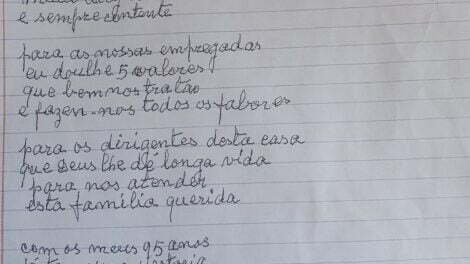 e sempre contente
para as nossas empregadas
eu doulhe 5 valores
que bem nos tratão
e fazen-nos todos os fabores
para os dirigentes desta casa
que Deus lhe dé longa vida
para nos atender
esta família querida
com os meus 95 anos